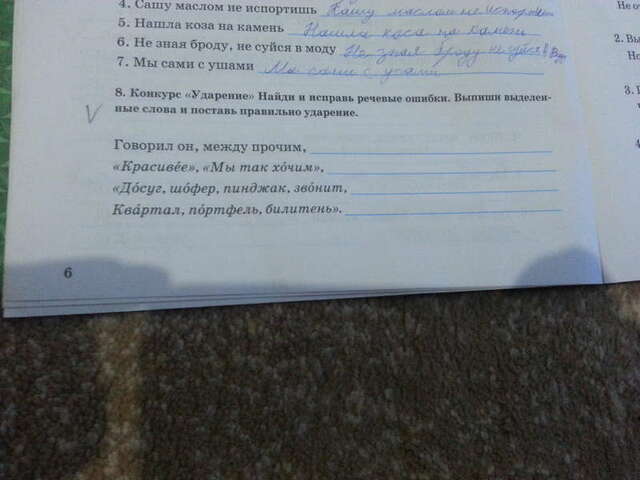 4. Сашу маслом не испортишь Кашу маслом не испортишь
5. Нашла коза на камень Нашла коса на камень
6. Не зная броду, не суйся в моду Не зная броду не суйся в
7. Мы сами с ушами Мы сами с усами
8. Конкурс «Ударение» Найди и исправь речевые ошибки. Выпиши выделен-
ные слова и поставь правильно ударение.
Говорил он, между прочим,
«Красиве́е», «Мы так хо́чим»,
«До́суг, шо́фер, пинджак, зво́нит,
Ква́ртал, по́ртфель, билитень».
6
2. Вы
3.
4